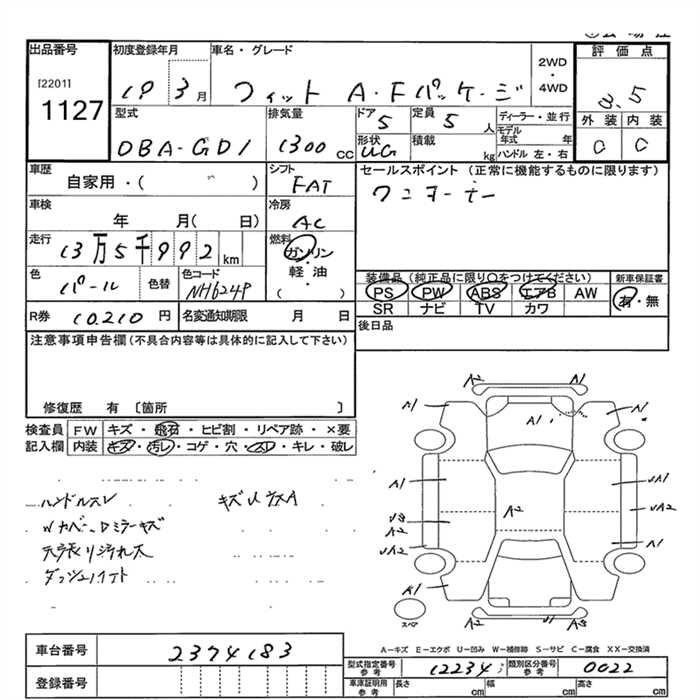 出品番号
[2201]
1127
初度登録年月
19 3月
車名・グレード
フィット A・Fパッケージ
2WD
・
4WD
評価点
3.5
外装 内装
C C
型式
DBA-GD1
排気量
1300 cc
ドア
5
定員
5 人
形状
UG
積載
kg
ディーラー・並行
モデル年式 年
ハンドル 左・右
車歴
自家用・( )
シフト
FAT
セールスポイント (正常に機能するものに限ります)
ワンオーナー
車検
年 月( 日)
冷房
AC
走行
13万5千992 km
燃料
ガソリン
・
軽油
・
( )
色
パール
色替
色コード
NH624P
装備品 (純正品に限り○をつけてください)
PS PW ABS エアB AW
SR ナビ TV カワ
新車保証書
有・無
R券
10,210 円
名変通知期限 月 日
後日品
注意事項申告欄(不具合内容等は具体的に記入して下さい)
修復歴 有 〔箇所 〕
検査員
記入欄
FW キズ・飛石・ヒビ割・リペア跡・×要
内装 キズ・汚レ・コゲ・穴・スレ・キレ・破レ
ハンドルスレ
キズUウスA
Wカバー、Dミラーキズ
天張り汚れ大
A2 A1
A1 A1 A1
A1 A1
A2 A2
A1
A1
スペア
A-キズ E-エクボ U-凹み W-補修跡 S-サビ C-腐食 XX-交換済
車台番号
2374183
登録番号
型式指定番号
参考
12234
類別区分番号
参考
0022
車庫証明用
参考
長さ cm 幅 cm 高さ cm